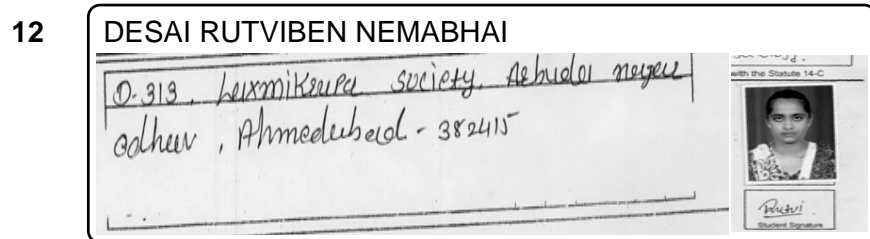 12
DESAI RUTVIBEN NEMABHAI
D-313, Laxmikrupa society, Arbuda nagar
odhav, Ahmedabad - 382415
with the Statute 14-C
Rutvi
Student Signature